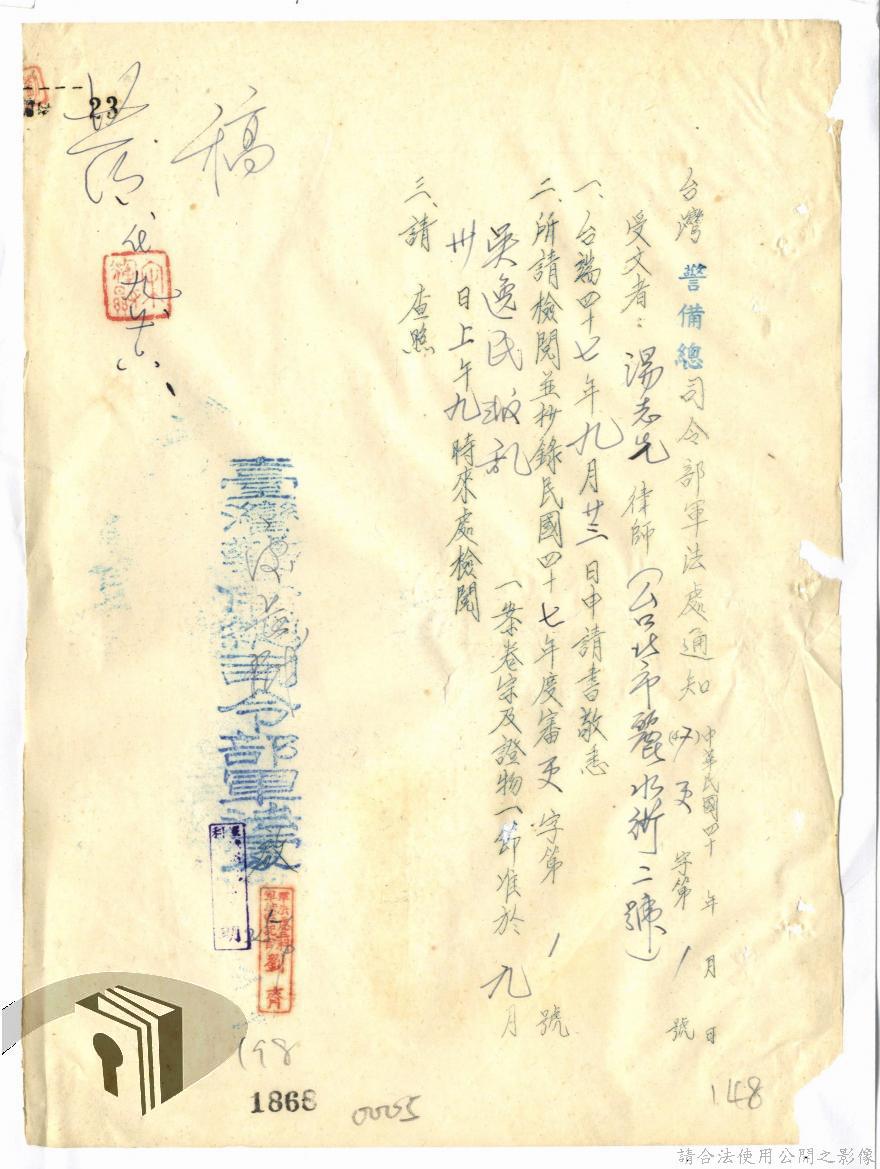 台灣警備總司令部軍法處通知
中華民國四十 年 月 日
(47)更 字第 1 號
受文者：湯志先 律師（台北市麗水街二號）
一、台端四十七年九月廿三日申請書敬悉
二、所請檢閱並抄錄民國四十七年度審更字第 1 號
吳逸民叛乱 一案卷宗及證物一節准於九月
卅日上午九時來處檢閱
三、請 查照
臺灣警備總司令部軍法處
劉齊
稿
發
23
198
1868
0005
148
請合法使用公開之影像